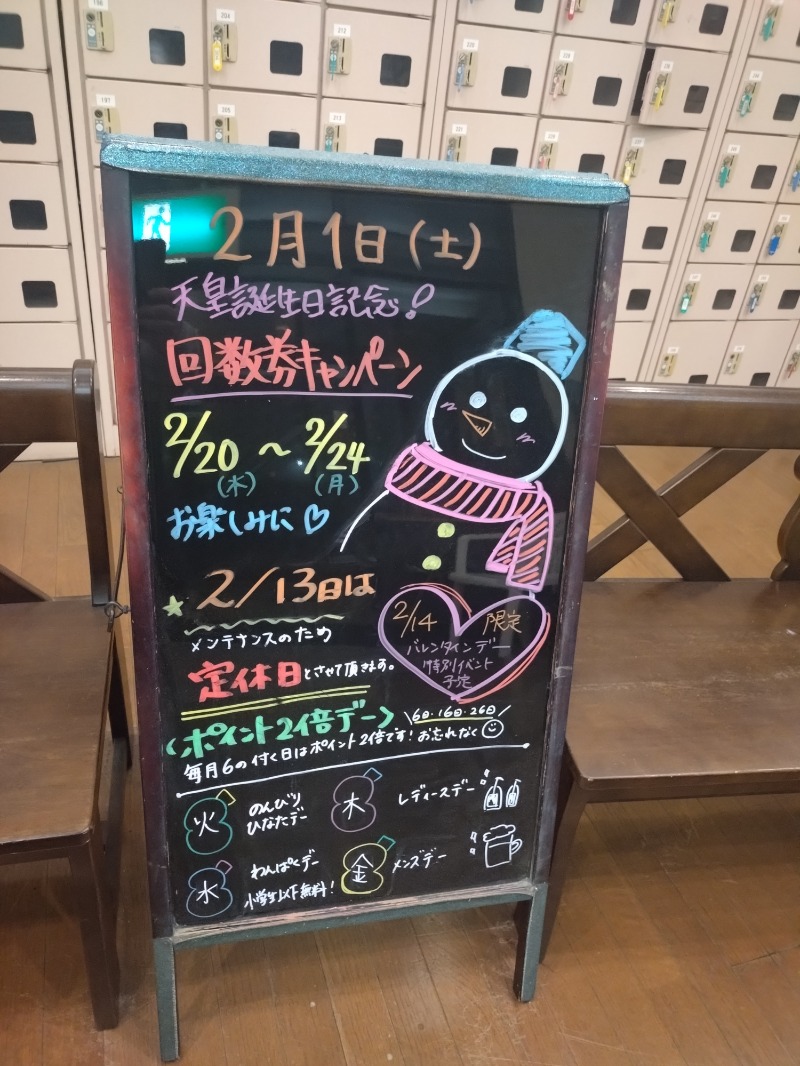 2月1日(土)
天皇誕生日記念!
回数券キャンペーン
2/20 ~ 2/24
(木) (月)
お楽しみに♡
★ 2/13日は
メンテナンスのため
定休日とさせて頂きます。
2/14 限定
バレンタインデー
特別イベント
予定
<ポイント2倍デー> \6日・16日・26日/
毎月6の付く日はポイント2倍です!お忘れなく☺
火 のんびり
ひなたデー
木 レディースデー
水 わんぱくデー
小学生以下無料!
金 メンズデー
204
212
220
197
205
213
221